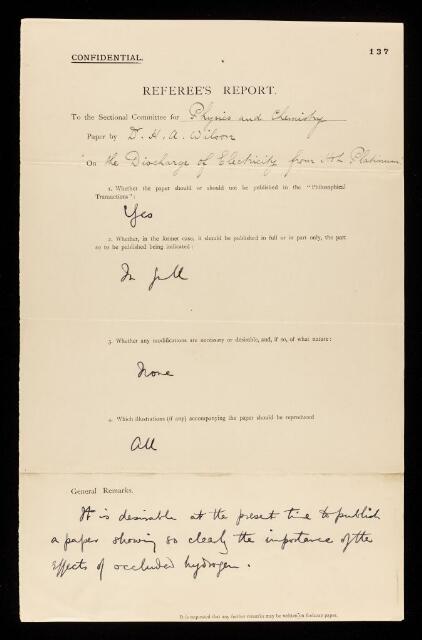 137
CONFIDENTIAL.
REFEREE'S REPORT.
To the Sectional Committee for Physics and Chemistry
Paper by Dr. H. A. Wilson
"On the Discharge of Electricity from Hot Platinum
1. Whether the paper should or should not be published in the "Philosophical
Transactions":
Yes
2. Whether, in the former case, it should be published in full or in part only, the part
so to be published being indicated:
In full
3. Whether any modifications are necessary or desirable, and, if so, of what nature:
None
4. Which illustrations (if any) accompanying the paper should be reproduced
All
General Remarks.
It is desirable at the present time to publish
a paper showing so clearly the importance of the
effects of occluded hydrogen.
It is requested that any further remarks may be written on foolscap paper.